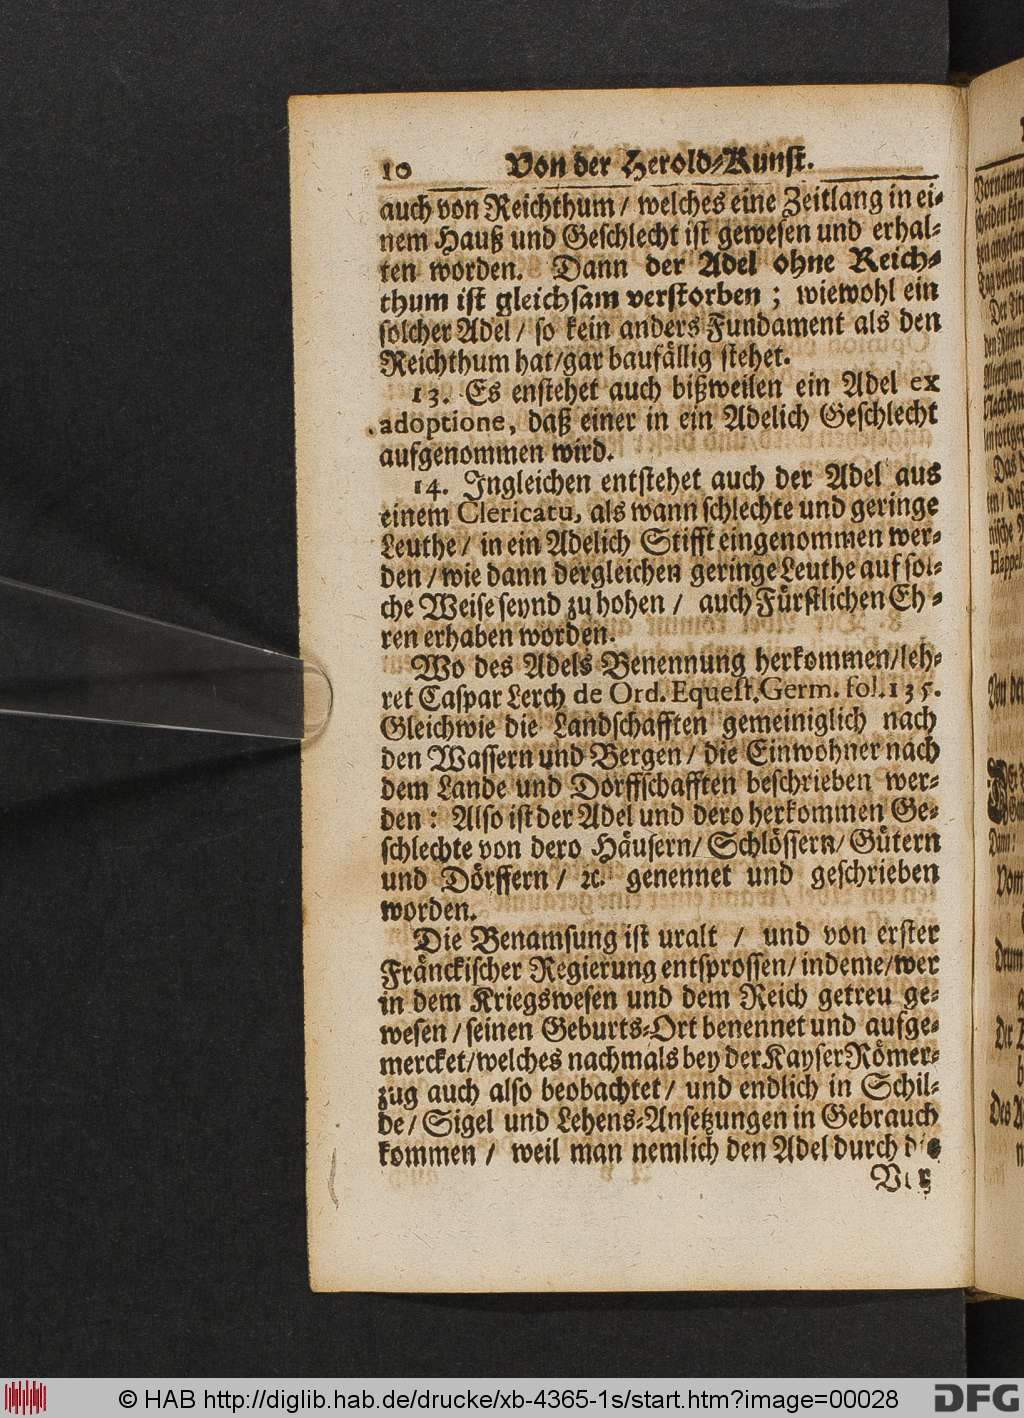 10 Von der Herold-Kunst.
auch von Reichthum / welches eine Zeitlang in ei-
nem Hauß und Geschlecht ist gewesen und erhal-
ten worden. Dann der Adel ohne Reich-
thum ist gleichsam verstorben ; wiewohl ein
solcher Adel / so kein anders Fundament als den
Reichthum hat / gar baufällig stehet.
13. Es enstehet auch bißweilen ein Adel ex
adoptione, daß einer in ein Adelich Geschlecht
aufgenommen wird.
14. Ingleichen entstehet auch der Adel aus
einem Clericatu, als wann schlechte und geringe
Leuthe / in ein Adelich Stifft eingenommen wer-
den / wie dann dergleichen geringe Leuthe auf sol-
che Weise seynd zu hohen / auch Fürstlichen Eh-
ren erhaben worden.
Wo des Adels Benennung herkommen / leh-
ret Caspar Lerch de Ord. Equest. Germ. fol. 135.
Gleichwie die Landschafften gemeiniglich nach
den Wassern und Bergen / die Einwohner nach
dem Lande und Dorffschafften beschrieben wer-
den : Also ist der Adel und dero herkommen Ge-
schlechte von dero Häusern / Schlössern / Gütern
und Dörffern / ꝛc. genennet und geschrieben
worden.
Die Benamsung ist uralt / und von erster
Fränckischer Regierung entsprossen / indeme / wer
in dem Kriegswesen und dem Reich getreu ge-
wesen / seinen Geburts-Ort benennet und aufge-
mercket / welches nachmals bey der Kayser Römer-
zug auch also beobachtet / und endlich in Schil-
de / Sigel und Lehens-Ansetzungen in Gebrauch
kommen / weil man nemlich den Adel durch
© HAB http://diglib.hab.de/drucke/xb-4365-1s/start.htm?image=00028
DFG